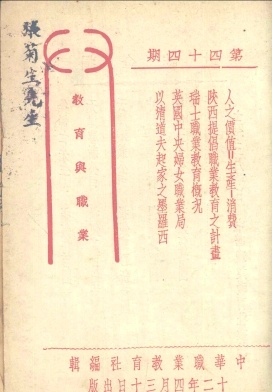 張菊生先生
教育與職業
期四十四第
人之價值=生產-消費
陝西提倡職業教育之計畫
瑞士職業教育概況
英國中央婦女職業局
以清道夫起家之墨羅西
輯編社育教業職華中
版出日十三月四年二十